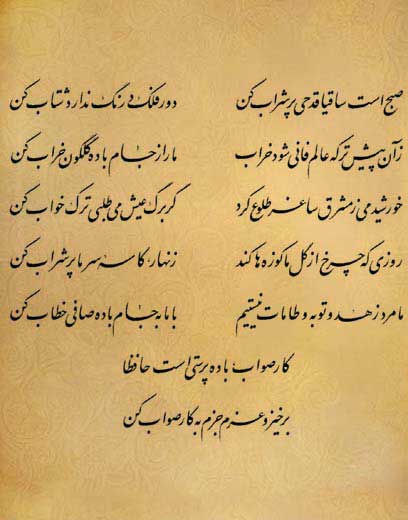 صبح است ساقیا قدحی پر شراب کن دور فلک درنگ ندارد شتاب کن
زآن پیش‌تر که عالم فانی شود خراب ما را ز جام باده گلگون خراب کن
خورشید می ز مشرق ساغر طلوع کرد گر برگ عیش می طلبی ترک خواب کن
روزی که چرخ از گل ما کوزه ها کند زنهار، کاسه سر ما پر شراب کن
ما مرد زهد و توبه و طامات نیستیم با ما به جام باده صافی خطاب کن
کار صواب باده پرستی است حافظا
برخیز و عزم جزم به کار صواب کن